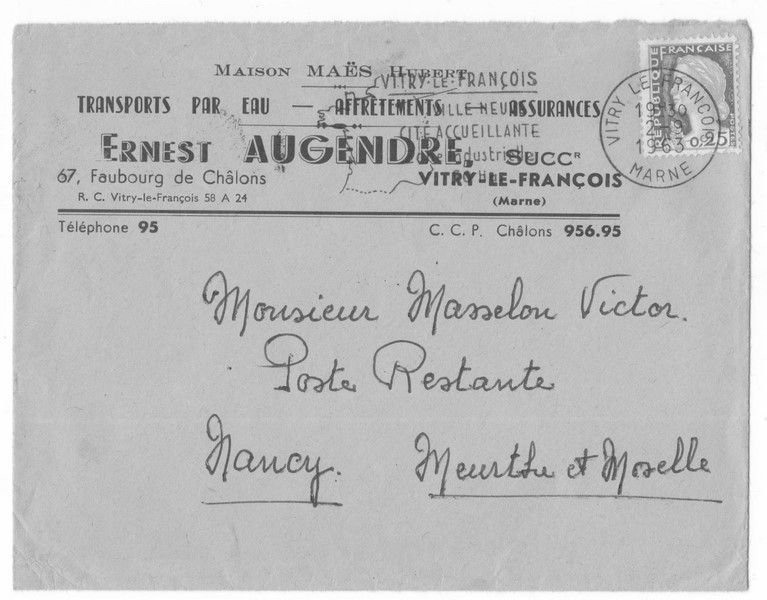 MAISON MAËS HUBERT
TRANSPORTS PAR EAU — AFFRÈTEMENTS — ASSURANCES
ERNEST AUGENDRE, SUCCR
67, Faubourg de Châlons VITRY-LE-FRANÇOIS
R. C. Vitry-le-François 58 A 24 (Marne)
Téléphone 95 C. C. P. Châlons 956.95
VITRY-LE-FRANÇOIS
VILLE NEUVE
CITÉ ACCUEILLANTE
Industrielle
RÉPUBLIQUE FRANÇAISE
POSTES
0,25
VITRY LE FRANÇOIS
19H30
1963
MARNE
Monsieur Masselon Victor.
Poste Restante
Nancy. Meurthe et Moselle